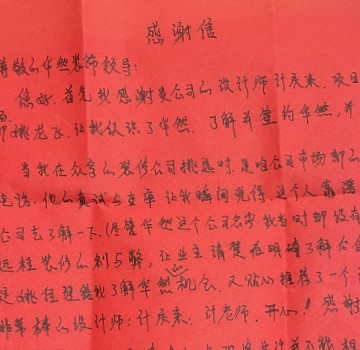 感谢信
尊敬的华然装饰领导:
您好.首先我感谢贵公司的设计师计庆来.项目
让我认识了华然.了解并签约华然,并
当我在众多的装修公司挑选时.是咱公司市场部的
电话.他的真诚与直率让我瞬间觉得,这个人靠谱
公司去了解一下.尽管华然这个公司名字我当时却没有
远程装修的利与弊,让业主清楚在明确了解公
是姚经理给我了解华然机会.又贴心推荐了一个
非常棒的设计师:计庆来:计老师.开心!感谢